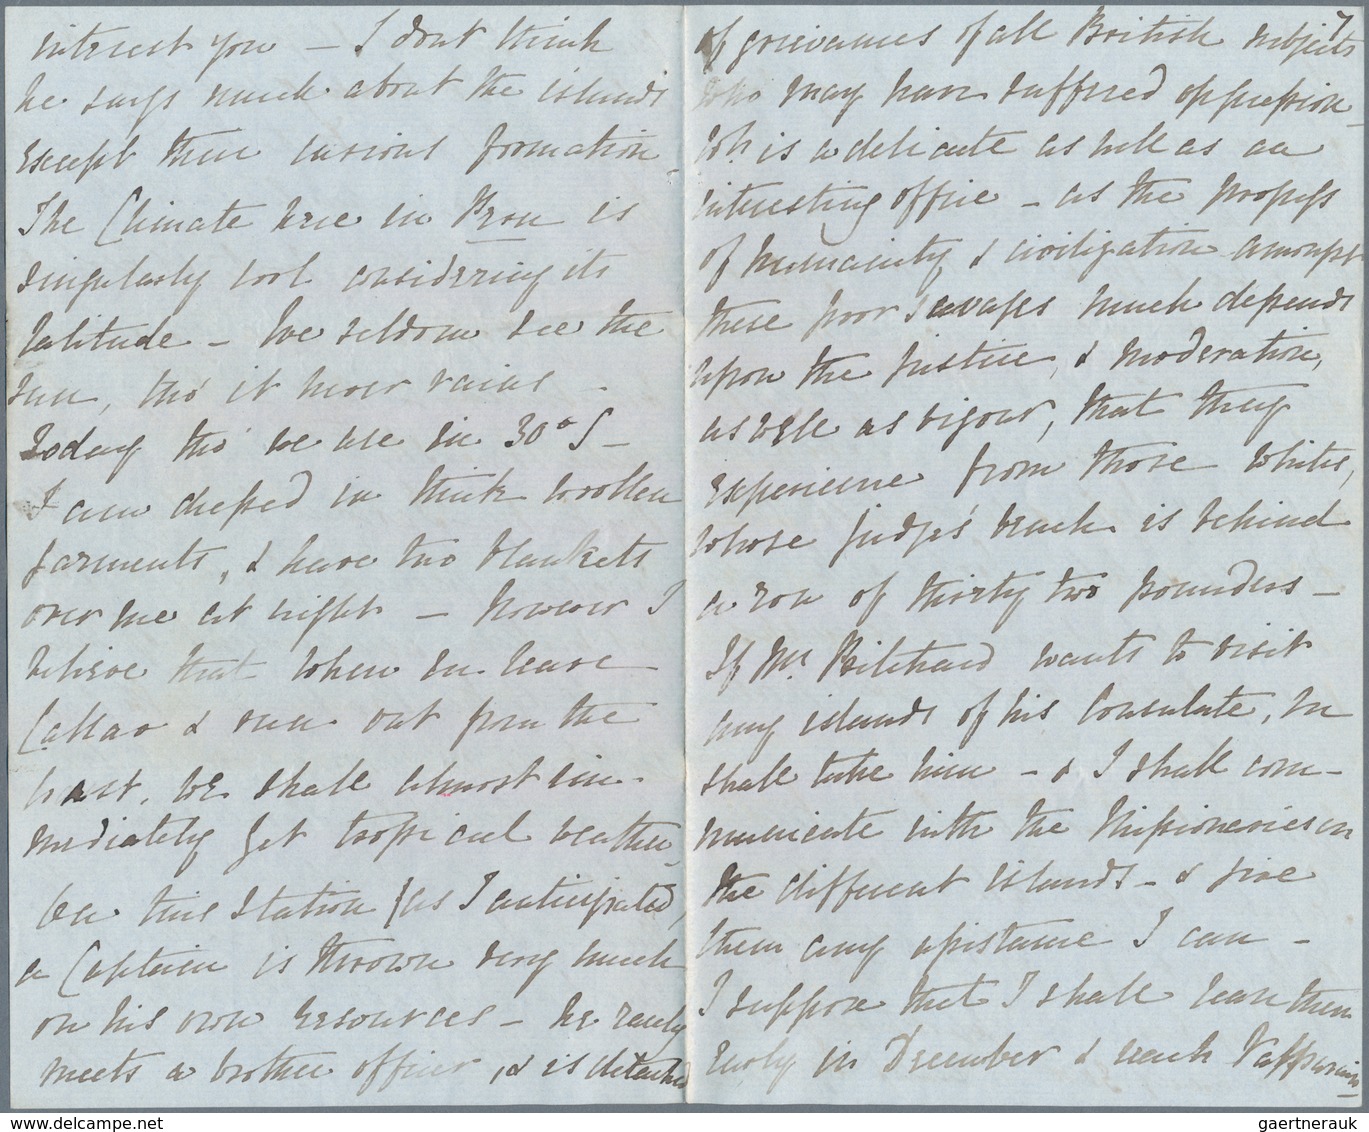 interest you – I dont think
he says much about the islands
except their curious formation
The Climate here in Peru is
singularly cool considering its
latitude – We seldom see the
sun, tho' it never rains –
Today tho' we are in 30° S –
I am dressed in thick woollen
garments, & have two blankets
over me at night – however I
believe that when we leave
Callao & run out from the
coast, we shall almost im-
mediately get tropical weather –
On this Station (as I anticipated,
a Captain is thrown very much
on his own resources – he rarely
meets a brother officer, & is detached
7
of grievances of all British subjects
who may have suffered oppression –
wh. is a delicate as well as an
interesting office – as the progress
of humanity & civilization amongst
these poor savages much depends
upon the justice, & moderation,
as well as vigour, that they
experience from those whites,
whose judge's bench is behind
a row of thirty two pounders –
If Mr. Pritchard wants to visit
any islands of his Consulate, we
shall take him – & I shall com-
municate with the Missionaries in
the different islands – & give
them any assistance I can –
I suppose that I shall leave them
early in December & reach Valparaiso
gaertnerauk @ www.delcampe.net